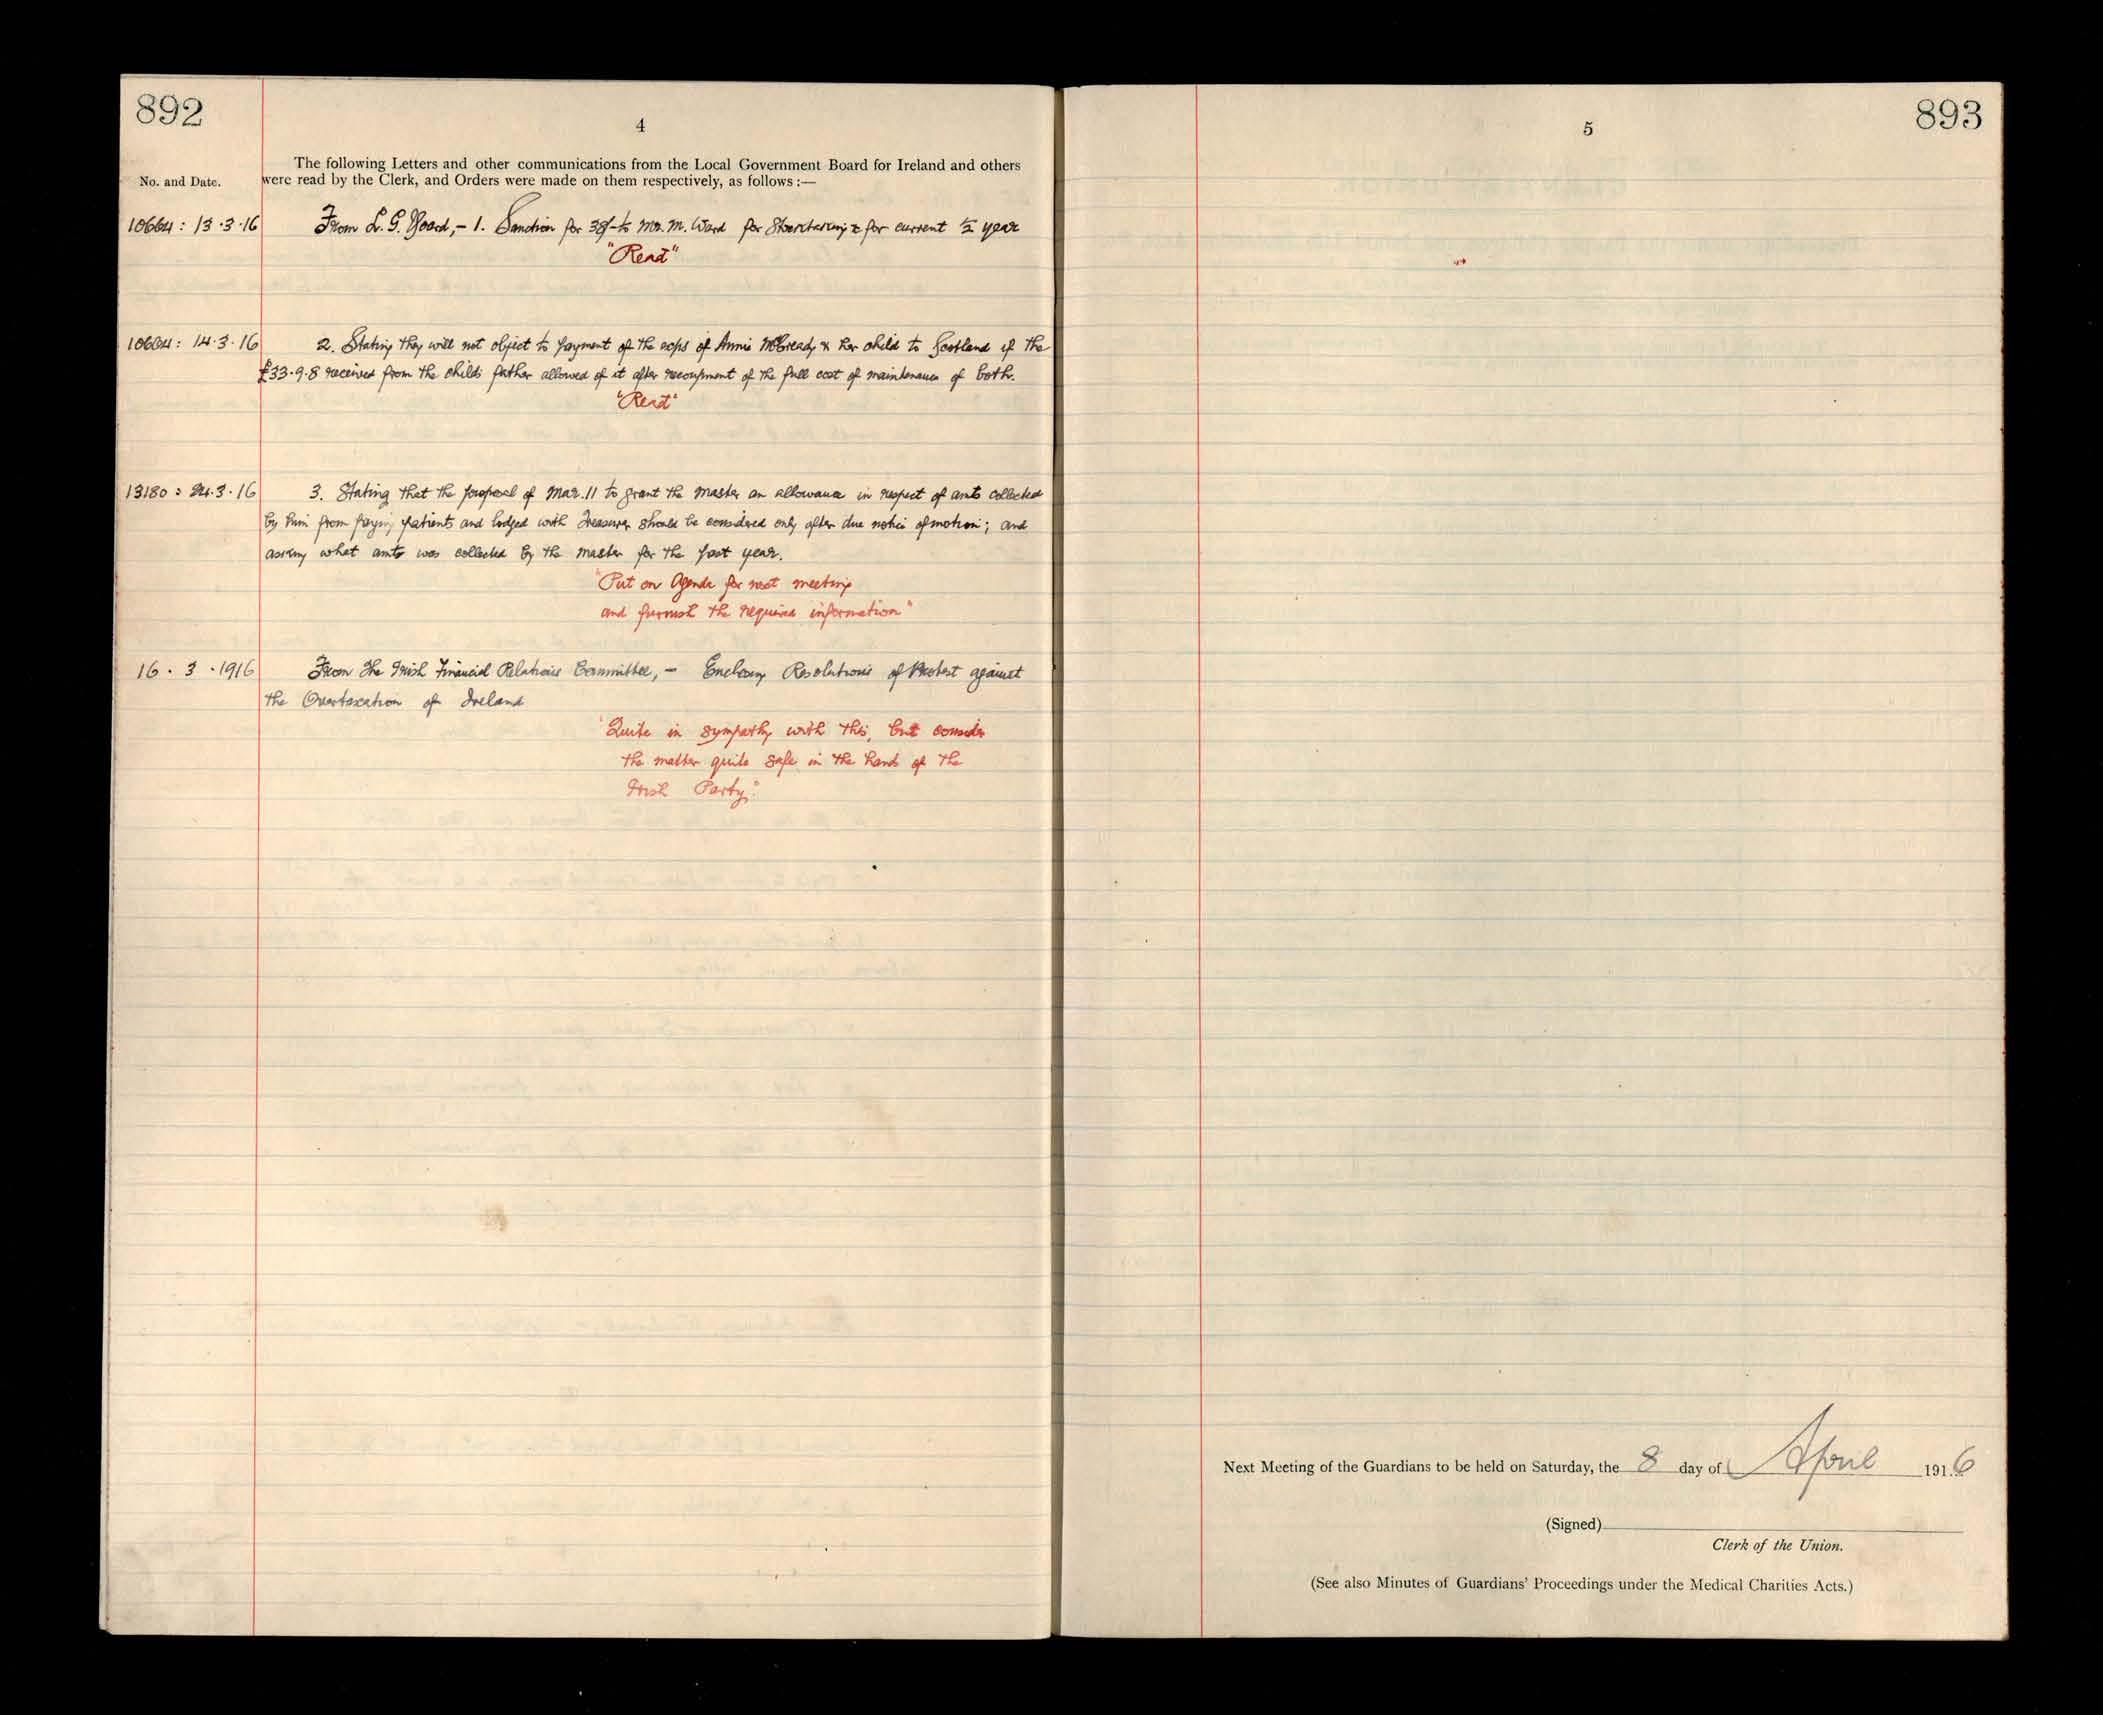 892
4
The following Letters and other communications from the Local Government Board for Ireland and others
No. and Date.
were read by the Clerk, and Orders were made on them respectively, as follows :—
10664 : 13.3.16 From L. G. Board, - 1. Sanction for 38/- to Mr. M. Ward for Storetaking &c for current ½ year
"Read"
10604 : 14.3.16 2. Stating they will not object to payment of the exps of Annie McCready & her child to Scotland if the
£33.9.8 received from the childs father allowed of it after recoupment of the full cost of maintenance of both.
"Read"
13180 : 24.3.16 3. Stating that the proposal of Mar. 11 to grant the Master an allowance in respect of amts collected
by him from paying patients and lodged with Treasurer should be considered only after due notice of motion; and
asking what amts was collected by the Master for the past year.
"Put on Agenda for next meeting
and furnish the required information"
16.3.1916 From The Irish Financial Relations Committee, - Enclosing Resolutions of Protest against
the Overtaxation of Ireland
"Quite in sympathy with this, but consider
the matter quite safe in the hands of the
Irish Party."
893
5
Next Meeting of the Guardians to be held on Saturday, the 8 day of April 1916
(Signed)
Clerk of the Union.
(See also Minutes of Guardians' Proceedings under the Medical Charities Acts.)